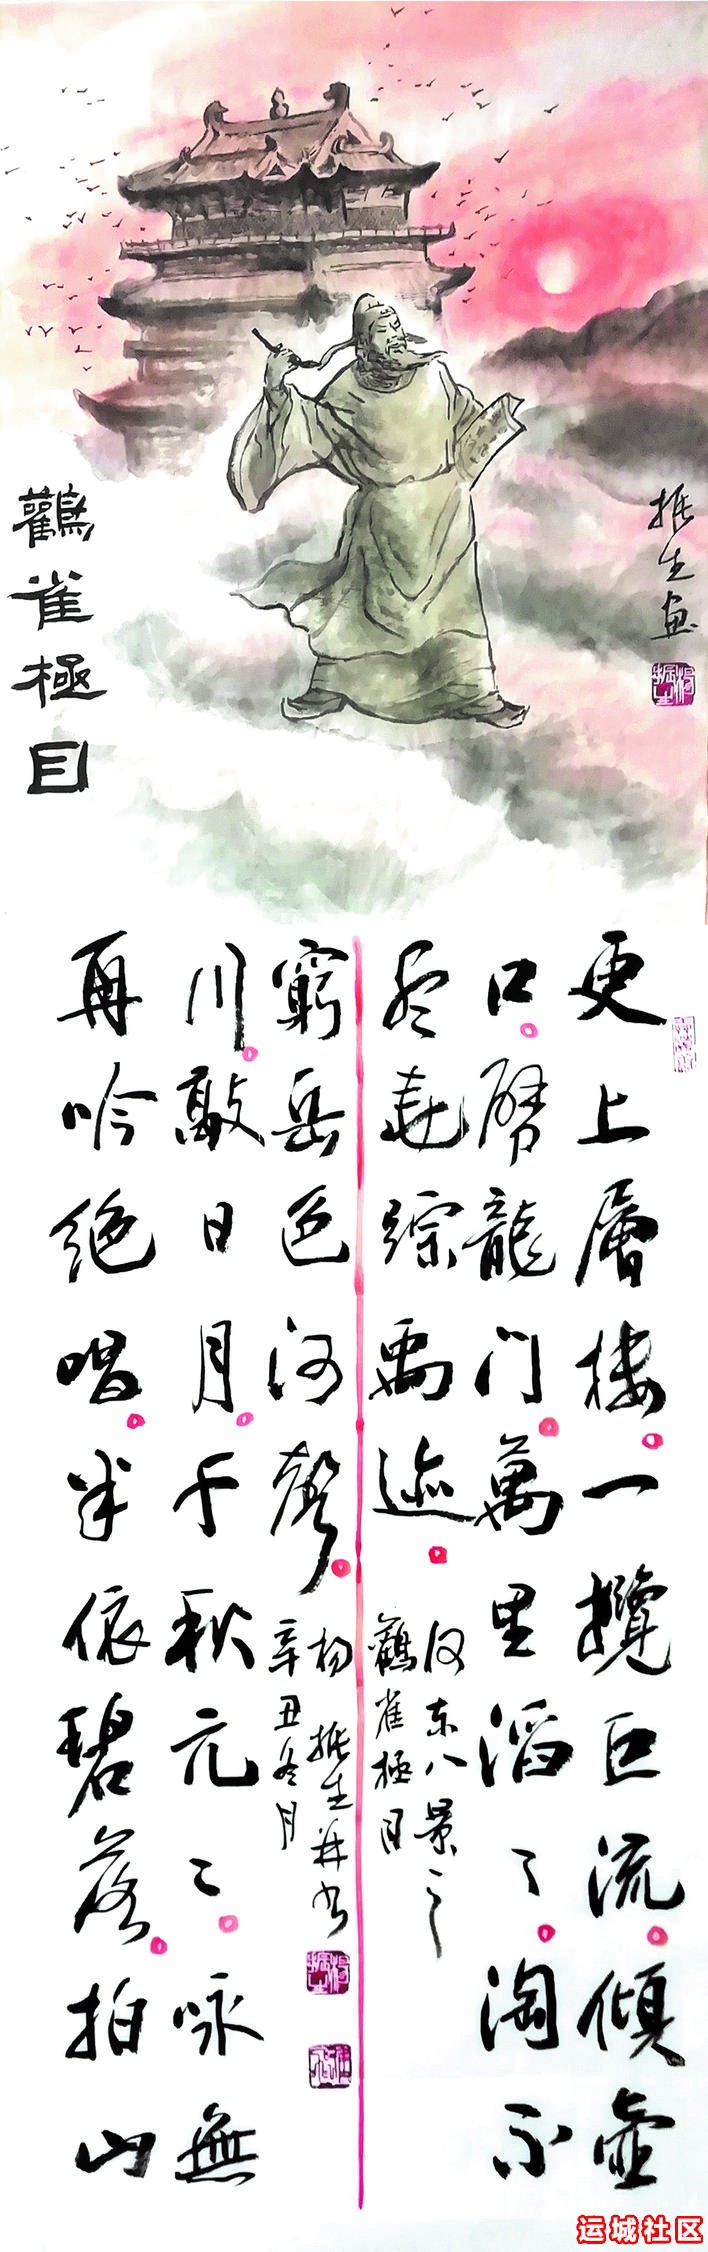 鸛雀極目
振生畫
更上層樓一攬巨流傾壺
口劈龍门萬里滔々淘不
尽堯踪禹迹
河東八景之一
鸛雀極目
再吟絕唱半依碧落拍山
川敲日月千秋元々咏無
窮岳色河聲
楊振生并书
辛丑冬月
运城社区